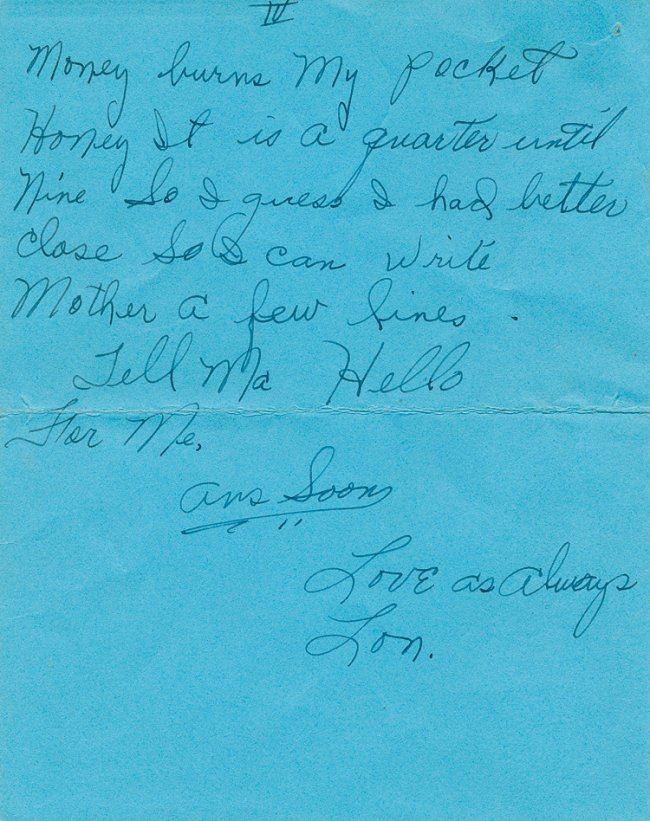 IV
Money burns My pocket
Honey It is a quarter until
Nine So I guess I had better
close So I can write
Mother a few lines.
Tell Ma Hello
For Me.
Ans Soon
Love as Always
Lon.